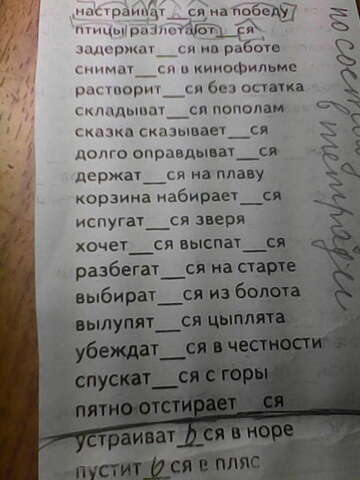 настраиват__ся на победу
птицы разлетают__ся
задержат__ся на работе
снимат__ся в кинофильме
растворит__ся без остатка
складыват__ся пополам
сказка сказывает__ся
долго оправдыват__ся
держат__ся на плаву
корзина набирает__ся
испугат__ся зверя
хочет__ся выспат__ся
разбегат__ся на старте
выбират__ся из болота
вылупят__ся цыплята
убеждат__ся в честности
спускат__ся с горы
пятно отстирает__ся
устраиваться в норе
пуститься в пляс
в тетради